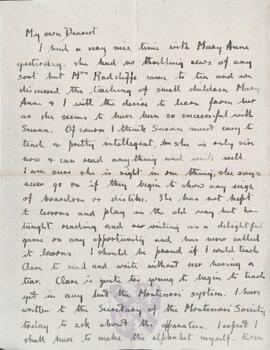 My own Dearest
I had a very nice time with Mary Anne
yesterday. She had no thrilling news of any
sort but Mrs Radcliffe came to tea and we
discussed the teaching of small children Mary
Anne & I with the desire to learn from her
as she seems to have been so successful with
Susan. Of course I think Susan must be easy to
teach & pretty intelligent, but she is only six
now & can read anything and write well
I am sure she is right in one thing, she says
never go on if they begin to show any signs
of boredom or dislike. She has not kept
to lessons and play in the old way but has
taught reading and now writing as a delightful
game on any opportunity and has never called
it lessons. I should be proud if I could teach
Clare to read and write without ever having a
tear. Clare is quite too young to begin to teach
yet in any but the Montessori system. I have
written to the Secretary of the Montessori Society
today to ask about the apparatus. I expect I
shall have to make the alphabet myself. Even